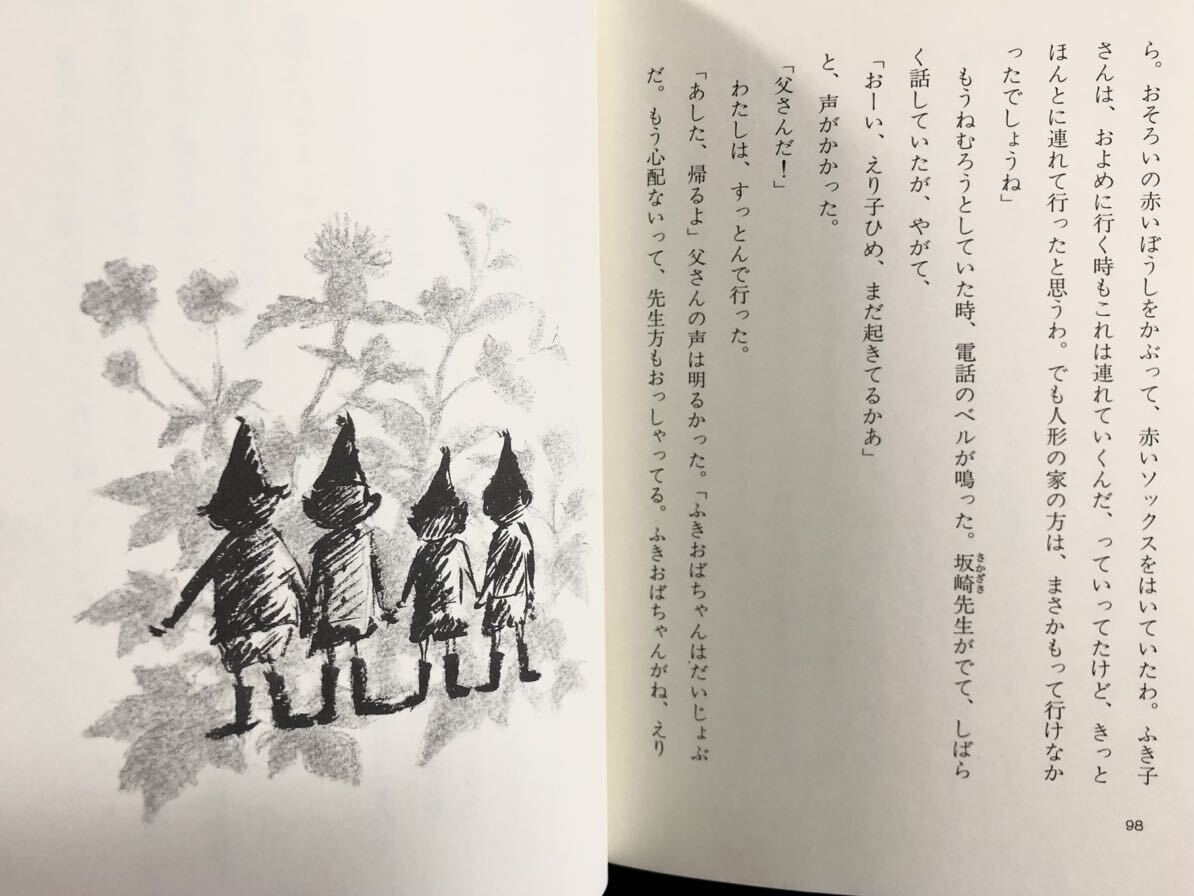 ら。おそろいの赤いぼうしをかぶって、赤いソックスをはいていたわ。ふき子
さんは、およめに行く時もこれは連れていくんだ、っていってたけど、きっと
ほんとに連れて行ったと思うわ。でも人形の家の方は、まさかもって行けなか
ったでしょうね」
もうねむろうとしていた時、電話のベルが鳴った。坂崎先生がでて、しばら
さかざき
く話していたが、やがて、
「おーい、えり子ひめ、まだ起きてるかあ」
と、声がかかった。
「父さんだ！」
わたしは、すっとんで行った。
「あした、帰るよ」父さんの声は明るかった。「ふきおばちゃんはだいじょぶ
だ。もう心配ないって、先生方もおっしゃってる。ふきおばちゃんがね、えり
98